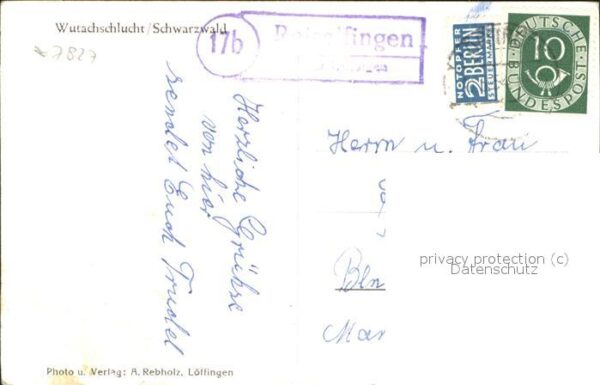 Wutachschlucht/Schwarzwald
7827
17b
NOTOPFER
2 BERLIN
STEUERMARKE
DEUTSCHE
10
BUNDESPOST
Herzliche Grüße
von hier
sendet Euch Trudel
Herrn u. Frau
Bln
Mar
privacy protection (c)
Datenschutz
Photo u. Verlag: A. Rebholz, Löffingen